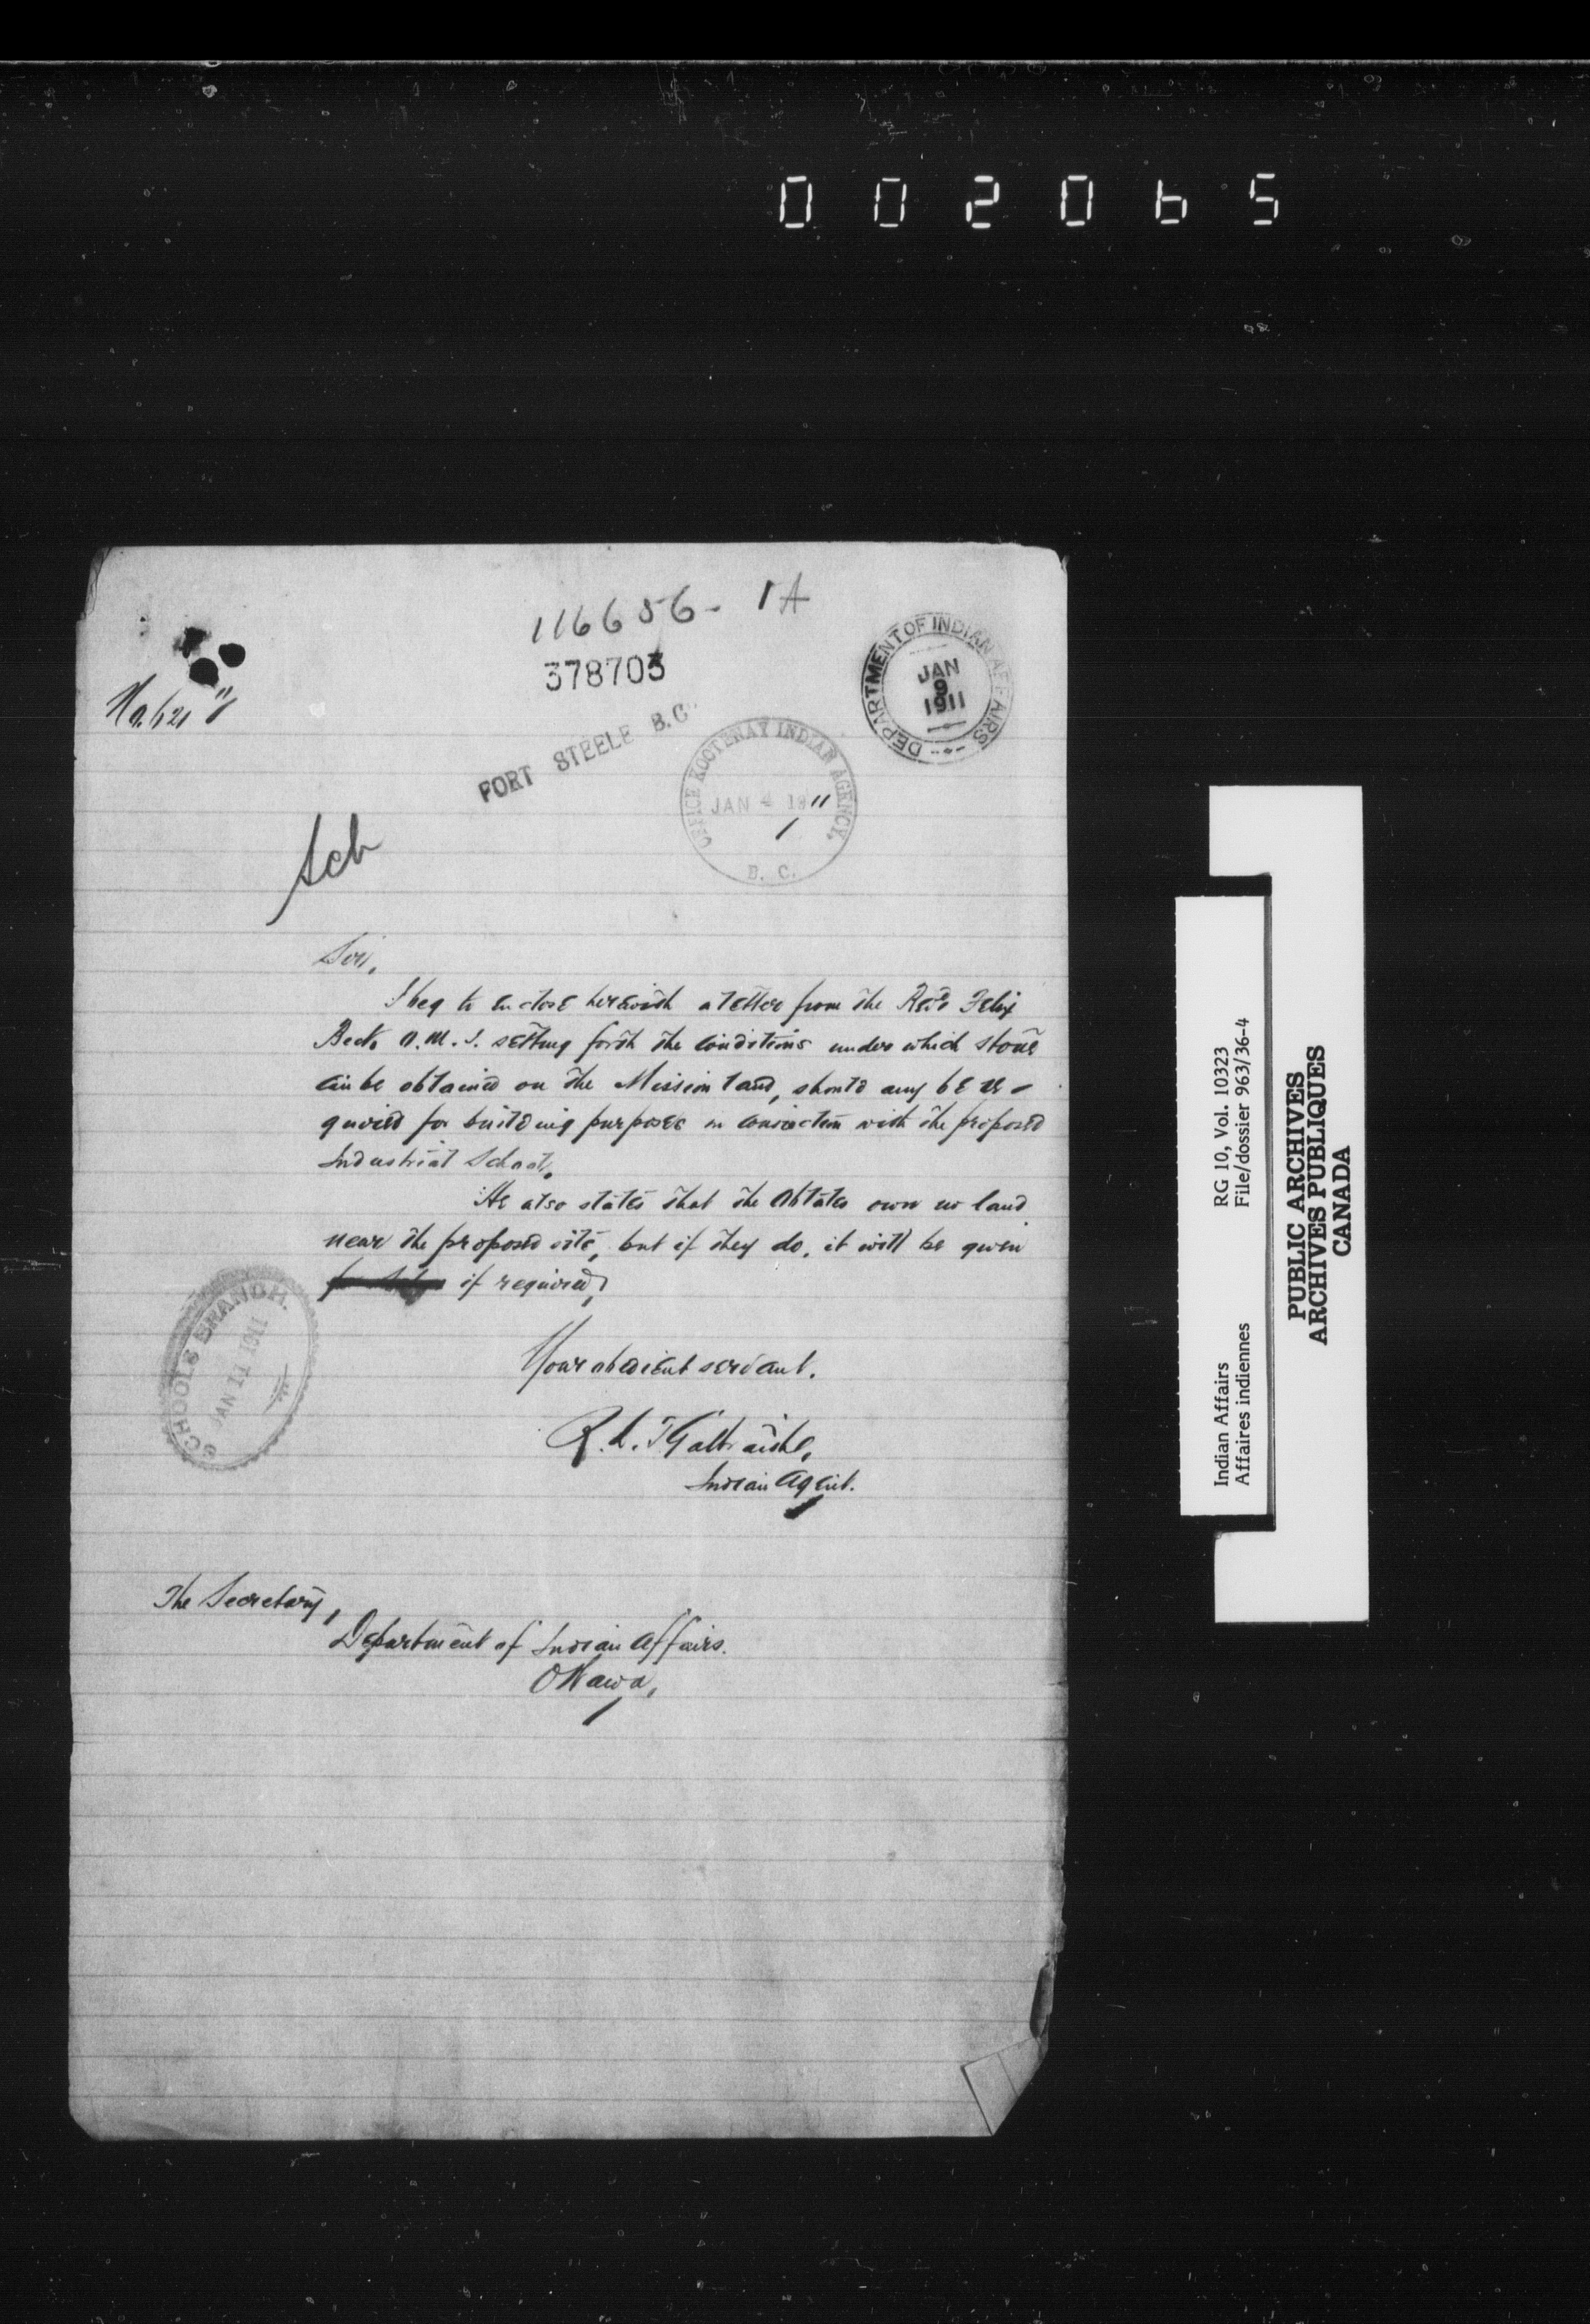 002065
116656- 1A
378703
DEPARTMENT OF INDIAN AFFAIRS
JAN
9
1911
FORT STEELE B.C.
OFFICE KOOTENAY INDIAN AGENCY,
JAN 4 1911
B. C.
Sch
Sir,
I beg to enclose herewith a letter from the Revd Felix
Beck, O.M.I. setting forth the conditions under which stone
can be obtained on the Mission land, should any be re-
quired for building purposes in connection with the proposed
Industrial School.
He also states that the Oblates own no land
near the proposed site, but if they do, it will be given
if required,
SCHOOLS BRANCH.
JAN 11 1911
Your obedient servant.
R. L. T. Galbraith,
Indian Agent.
The Secretary,
Department of Indian Affairs.
Ottawa,
Indian Affairs RG 10, Vol. 10323
Affaires indiennes File/dossier 963/36-4
PUBLIC ARCHIVES
ARCHIVES PUBLIQUES
CANADA